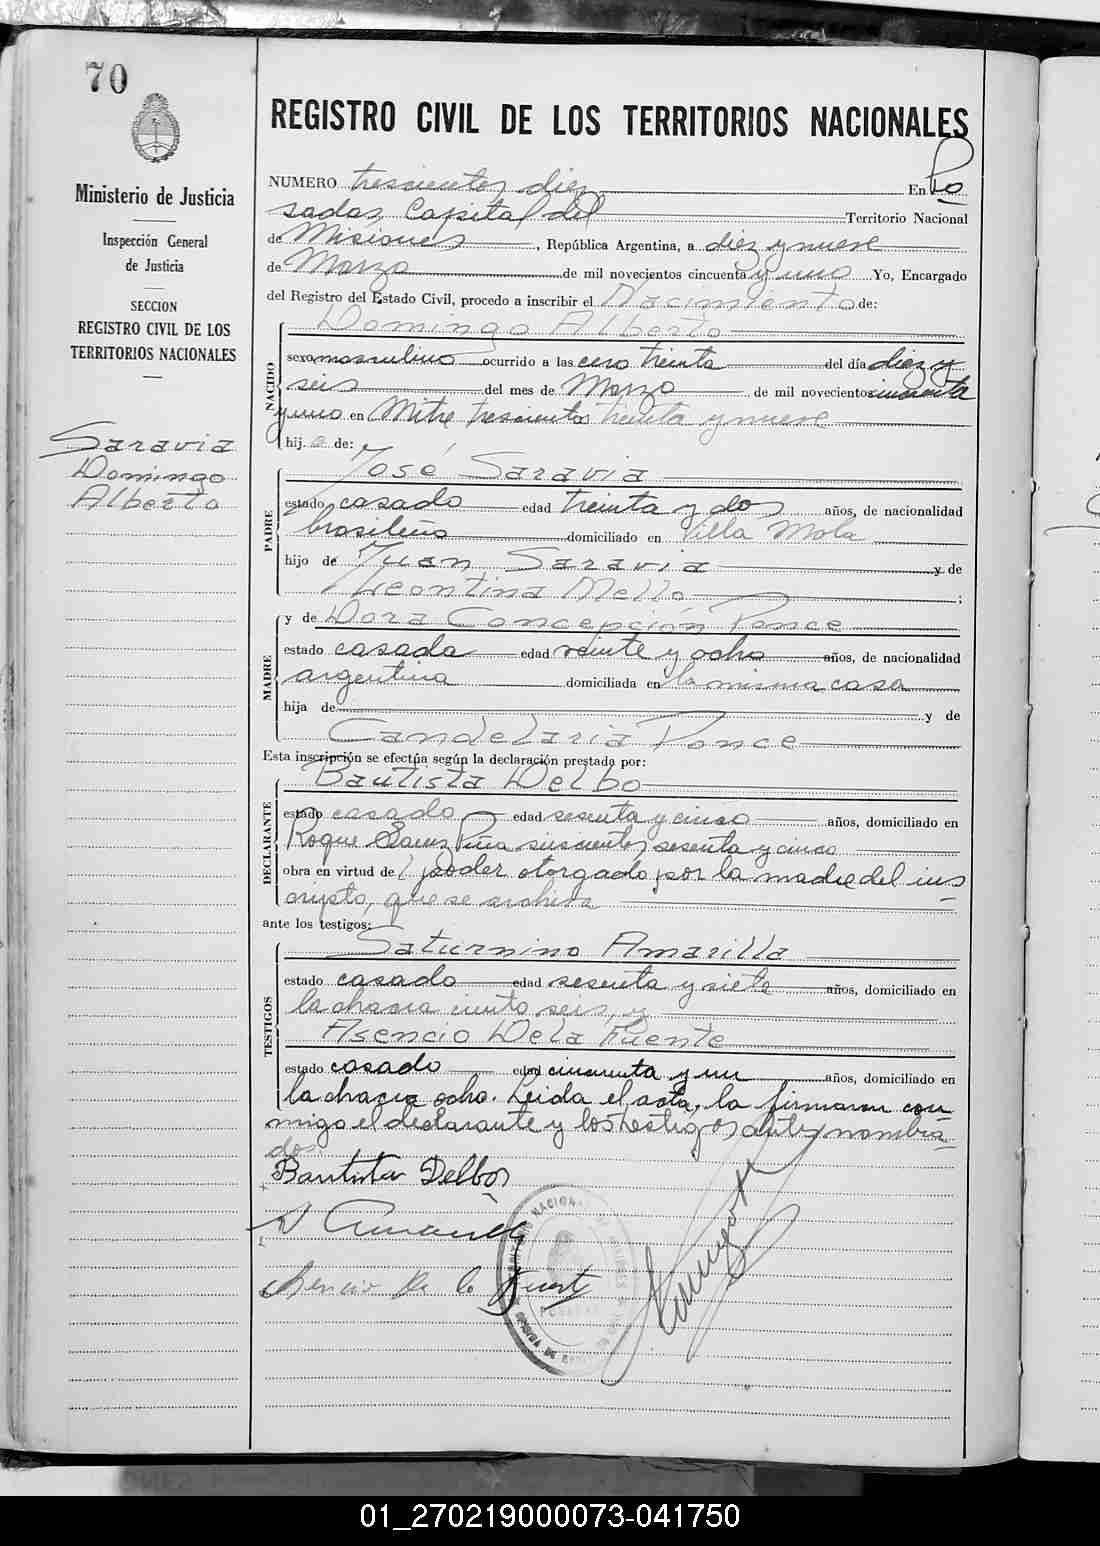 70
Ministerio de Justicia
Inspección General
de Justicia
SECCION
REGISTRO CIVIL DE LOS
TERRITORIOS NACIONALES
Saravia
Domingo
Alberto
REGISTRO CIVIL DE LOS TERRITORIOS NACIONALES
NUMERO trescientos diez En Po
sadas, Capital del Territorio Nacional
de Misiones, República Argentina, a diez y nueve
de Marzo de mil novecientos cincuenta y uno Yo, Encargado
del Registro del Estado Civil, procedo a inscribir el Nacimiento de:
NACIDO
Domingo Alberto
sexo masculino ocurrido a las cero treinta del día diez y
seis del mes de Marzo de mil novecientos cincuenta
y uno en Mitre trescientos treinta y nueve
hijo de:
PADRE
José Saravia
estado casado edad treinta y dos años, de nacionalidad
brasileño domiciliado en Villa Mola
hijo de Juan Saravia y de
Leontina Mello ;
MADRE
y de Dora Concepción Ponce
estado casada edad veinte y ocho años, de nacionalidad
argentina domiciliada en la misma casa
hija de y de
Candelaria Ponce
Esta inscripción se efectúa según la declaración prestada por:
DECLARANTE
Bautista Delbo
estado casado edad sesenta y cinco años, domiciliado en
Roque Saenz Peña seiscientos sesenta y cinco
obra en virtud de poder otorgado por la madre del ins
cripto, que se archiva
ante los testigos:
TESTIGOS
Saturnino Amarilla
estado casado edad sesenta y siete años, domiciliado en
la chacra ciento seis, y
Asencio De la Fuente
estado casado edad cincuenta y un años, domiciliado en
la chacra ocho. Leida el acta, la firmaron con
migo el declarante y los testigos antes nombra
dos.
Bautista Delbo
Asencio De la Fuente
01_270219000073-041750